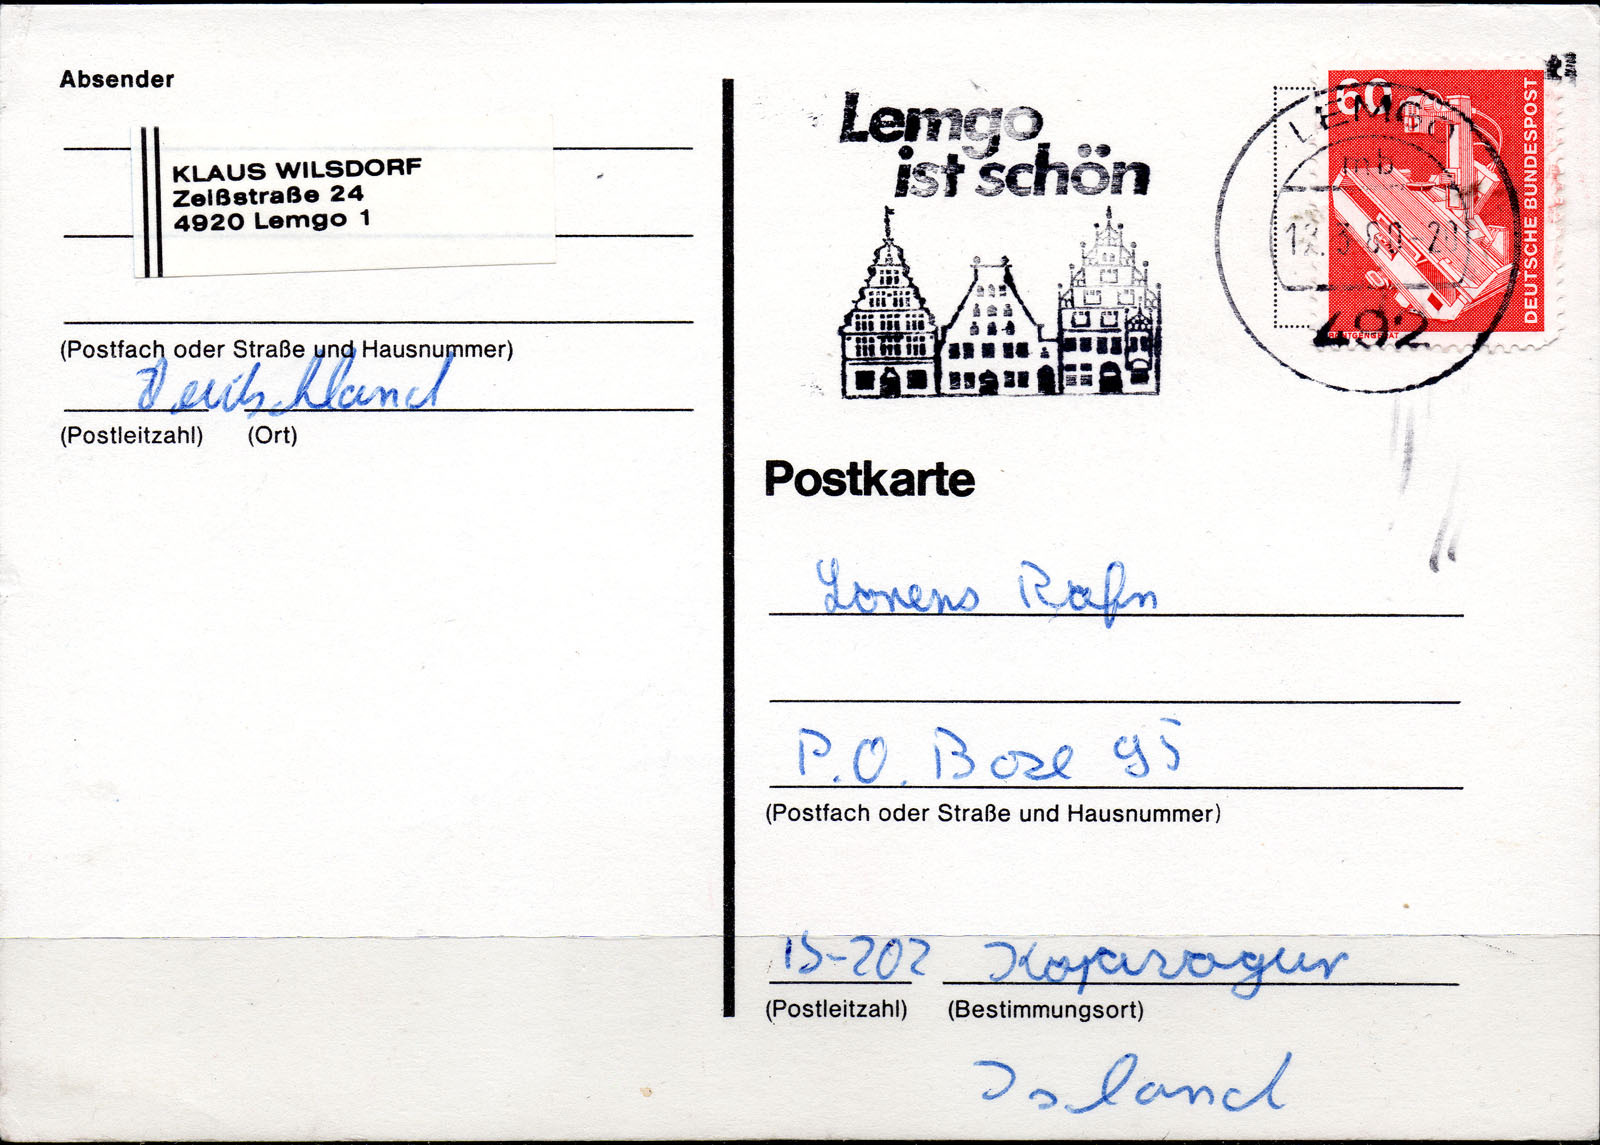 Absender
KLAUS WILSDORF
Zeißstraße 24
4920 Lemgo 1
(Postfach oder Straße und Hausnummer)
Deutschland
(Postleitzahl) (Ort)
Lemgo
ist schön
LEMGO
mb
492
60
DEUTSCHE BUNDESPOST
Postkarte
Lorens Rafn
P.O. Boxe 95
(Postfach oder Straße und Hausnummer)
IS-202 Kopavogur
(Postleitzahl) (Bestimmungsort)
Island